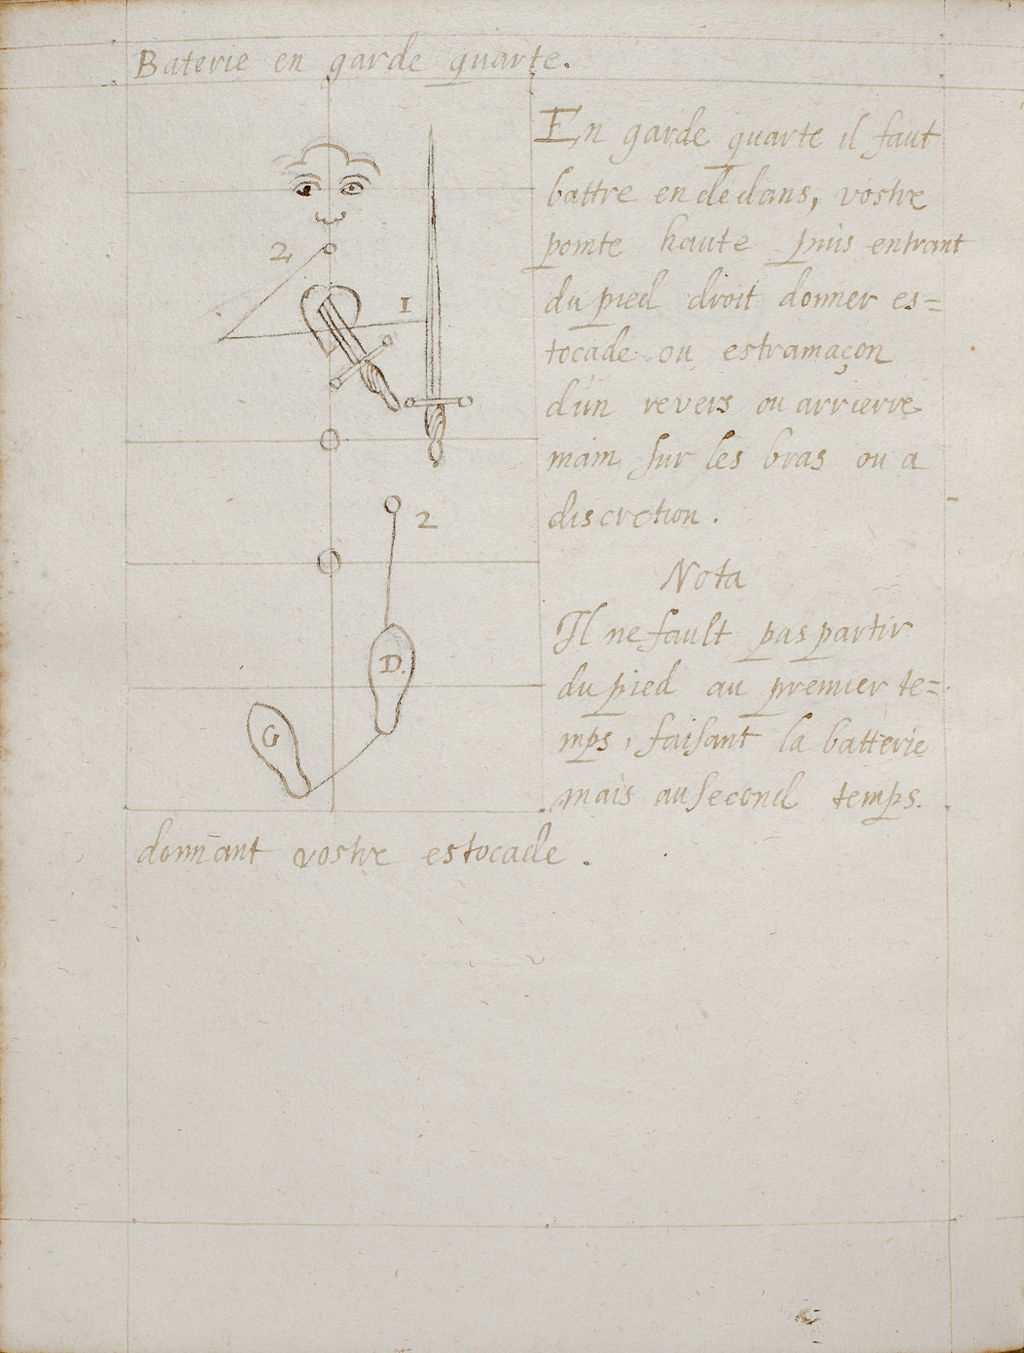 Baterie en garde quarte.
2
1
2
D.
G
En garde quarte il faut
battre en dedans, vostre
pointe haute puis entrant
du pied droit donner es=
tocade ou estramaçon
d'un revers ou arrierre
main sur les bras ou a
discretion.
Nota
Il ne fault pas partir
du pied au premier te=
mps, faisant la batterie
mais au second temps.
donnant vostre estocade.